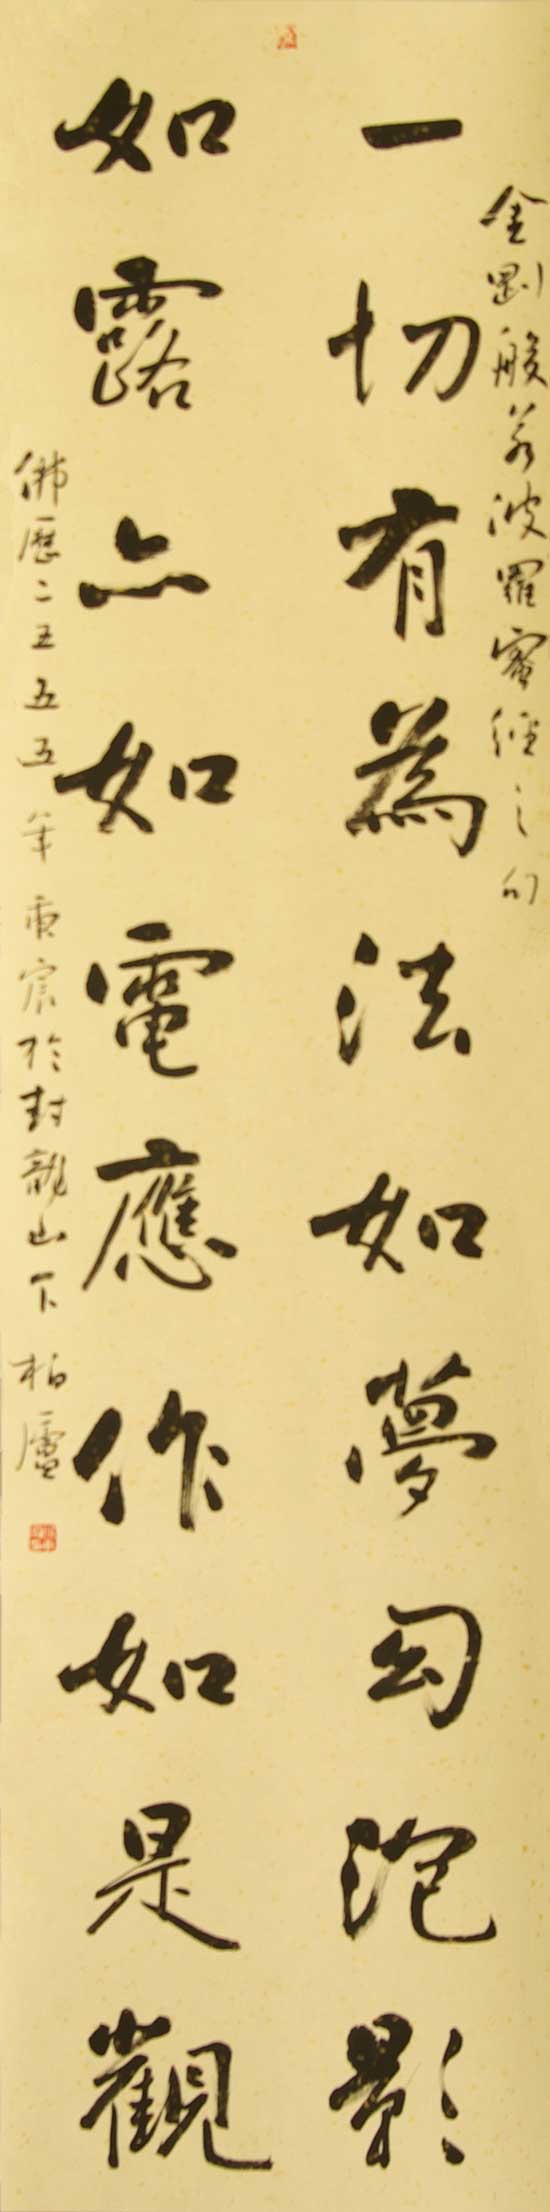 金剛般若波羅蜜經之句
一切有為法如夢幻泡影
如露亦如電應作如是觀
佛歷二五五五年 於封龍山下 柏廬